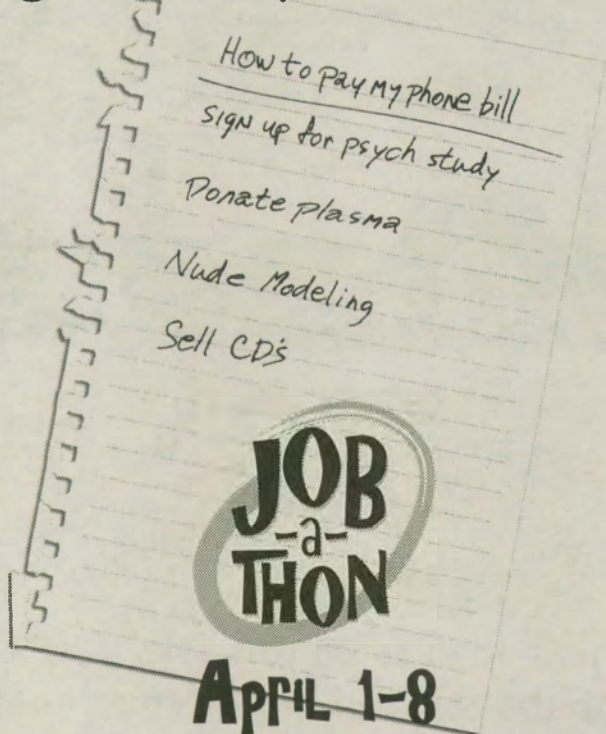 How to pay my phone bill
sign up for psych study
Donate plasma
Nude Modeling
Sell CD's
JOB
-a-
THON
April 1-8